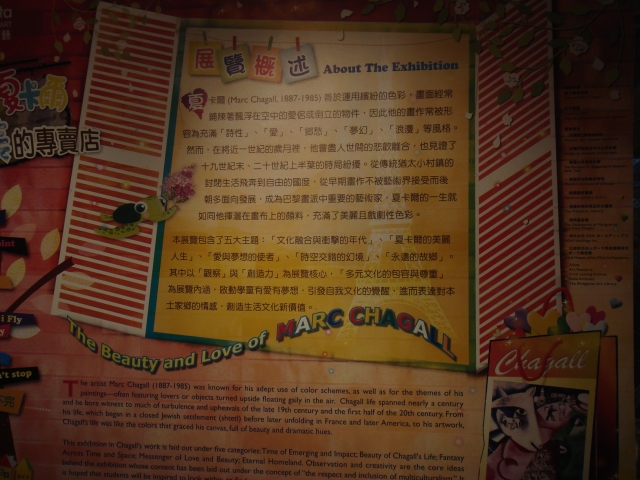 夏卡爾
的專賣店
展覽概述 About The Exhibition
夏卡爾 (Marc Chagall, 1887-1985) 善於運用繽紛的色彩，畫面經常
鋪陳著飄浮在空中的愛侶或倒立的物件，因此他的畫作常被形
容為充滿「詩性」、「愛」、「鄉愁」、「夢幻」、「浪漫」等風格。
然而，在將近一世紀的歲月裡，他嘗盡人世間的悲歡離合，也見證了
十九世紀末、二十世紀上半葉的時局紛擾。從傳統猶太小村鎮的
封閉生活飛奔到自由的國度，從早期畫作不被藝術界接受而後
朝多面向發展，成為巴黎畫派中重要的藝術家，夏卡爾的一生就
如同他揮灑在畫布上的顏料，充滿了美麗且戲劇性色彩。
本展覽包含了五大主題：「文化融合與衝擊的年代」、「夏卡爾的美麗
人生」、「愛與夢想的使者」、「時空交錯的幻境」、「永遠的故鄉」。
其中以「觀察」與「創造力」為展覽核心，「多元文化的包容與尊重」
為展覽內涵，啟動學童有愛有夢想，引發自我文化的覺醒，進而表達對本
土家鄉的情感，創造生活文化新價值。
The Beauty and Love of MARC CHAGALL
The artist Marc Chagall (1887-1985) was known for his adept use of color schemes, as well as for the themes of his
paintings—often featuring lovers or objects turned upside floating gaily in the air. Chagall life spanned nearly a century
and he bore witness to much of turbulence and upheavals of the late 19th century and the first half of the 20th century. From
his life, which began in a closed Jewish settlement (shtetl) before later unfolding in France and later America, to his artwork,
Chagall's life was like the colors that graced his canvas, full of beauty and dramatic hues.
This exhibition in Chagall's work is laid out under five categories: Time of Emerging and Impact; Beauty of Chagall's Life; Fantasy
Across Time and Space; Messenger of Love and Beauty; Eternal Homeland. Observation and creativity are the core ideas
behind the exhibition whose content has been laid out under the concept of "the respect and inclusion of multiculturalism." It
i Fly
't stop
Chagall